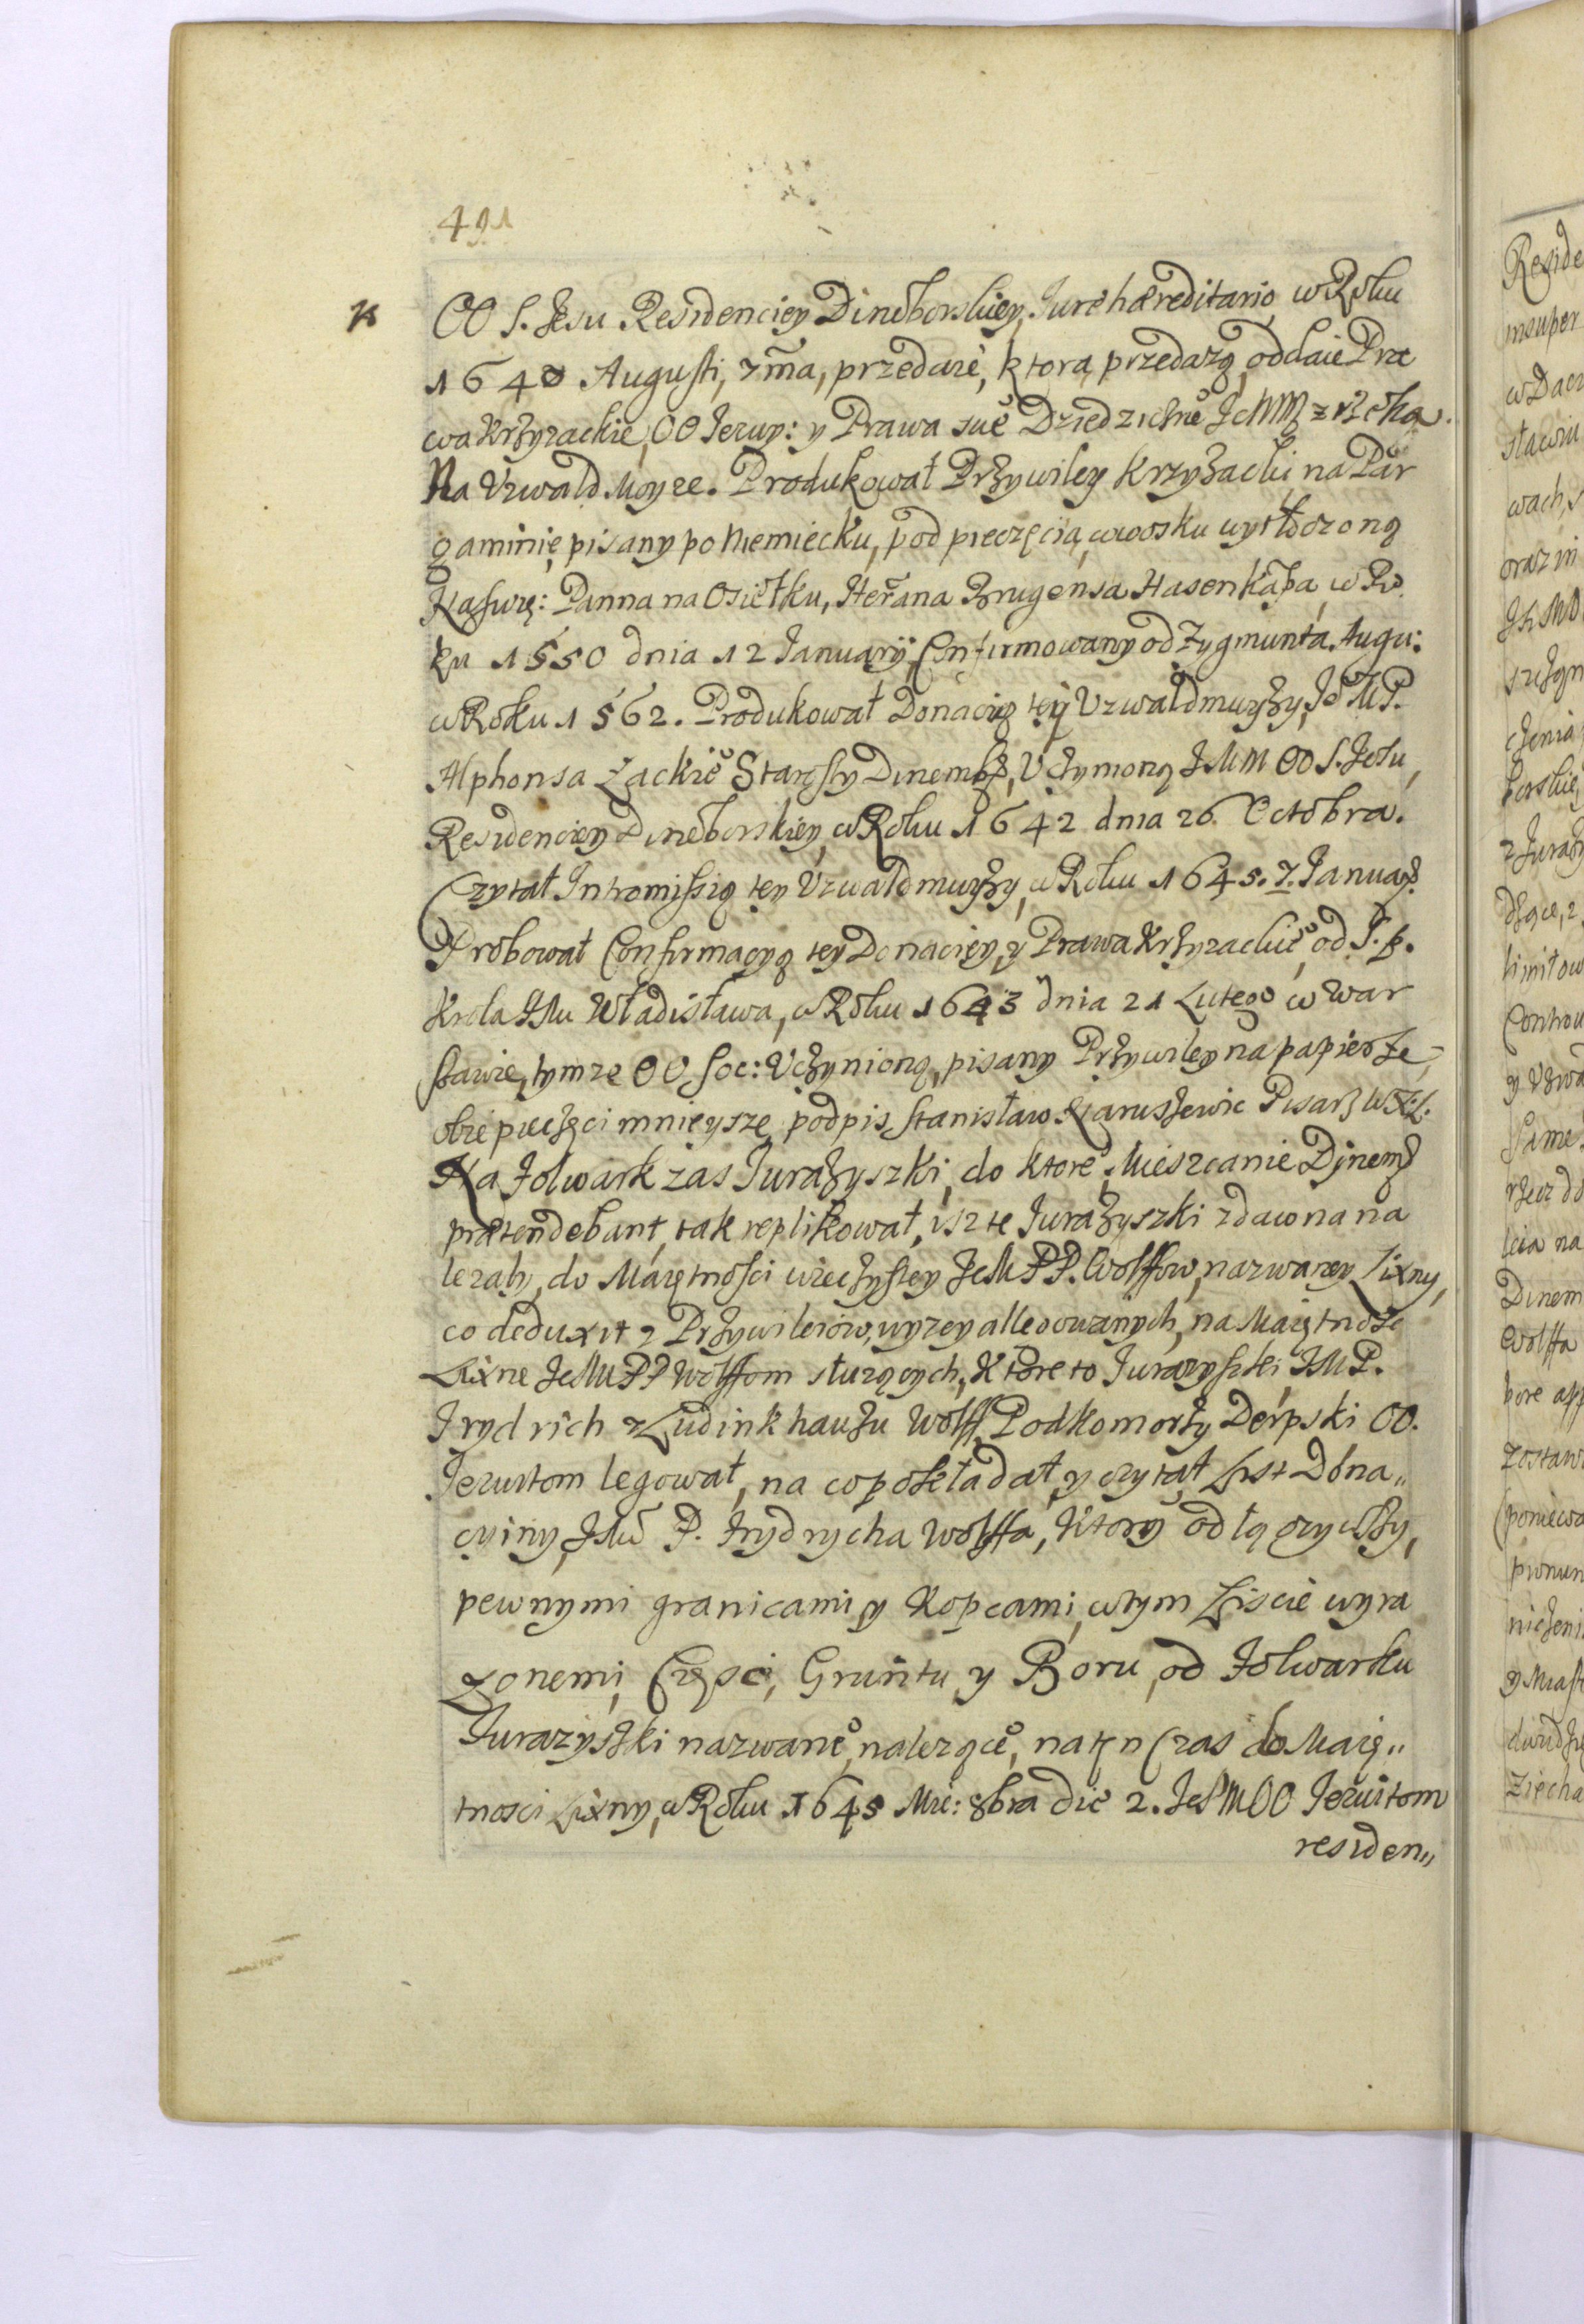 491
OO S. Jesu Residenciey Dineborskiey, Jure hæreditario, w Roku
1640 Augusti, 7ma, przedaie, ktorą przedażą oddaie Pra
wa Krzyzackie, OO Jezuy: y Prawa sue Dziedziczne
Na Vzwald Moyze. Produkował Przywiley Krzyzacki na Par
gaminie, pisany po Niemiecku, pod pieczęcią, w wosku wytłoczoną
Panna na Osiełku, Brugensa Hasenkąpa, w Ro
ku 1550 dnia 12 January, Confirmowany od Zygmunta Augu:
w Roku 1562. Produkował Donacią tey Vzwaldmuyzy, Je MP.
Alphonsa Lackie Starosty Dinemb, Vczynioną JMM OO S. Jesu,
Residenciey Dineborskiey, w Roku 1642 dnia 26 Octobra.
Czytał Intromissią tey Vzwaldmuyzy, w Roku 1645. 7. January.
Probował Confirmacyą tey Donaciey, y Prawa Krzyzackie, od S. p.
Krola JMu Władisława, w Roku 1643 dnia 21 Lutego w War
szawie, tymze OO Soc: Vczynioną, pisany Przywiley na papierze,
obie pieczęci mnieysze, podpis Stanisław Naruszewic Pisarz W X L.
Na Folwark zas Jurazyszki, do ktore Mieszczanie Dynem
prætendebant, tak replikował, isz te Jurazyszki zdawna na
lezały, do Maiętności wieczystey JeMPP. Wolffow, nazwaney Lixny,
co deduxit z Przywileiow, wyzey allegowanych, na Maiętność
Lixne JeMPP Wolffom słuzących, Ktore to Jurazyszki JMP.
Frydrich z Ludinkhauzu Wolff Podkomorzy Derpski OO.
Jezuitom legował, na co pokładał, y czytał List Dona„
cyiny, JMu P. Frydrycha Wolffa, Ktory odłączywszy,
pewnymi granicami y Kopcami, w tym Liscie wyra
zonemi, Częsci, Gruntu y Boru, od Folwarku
Jurazyszki nazwane, nalezące, na ten Czas do Maię„
tnosci Lixny, w Roku 1645 Mie: 8bra die 2. JeMM OO Jezuitom
residen„